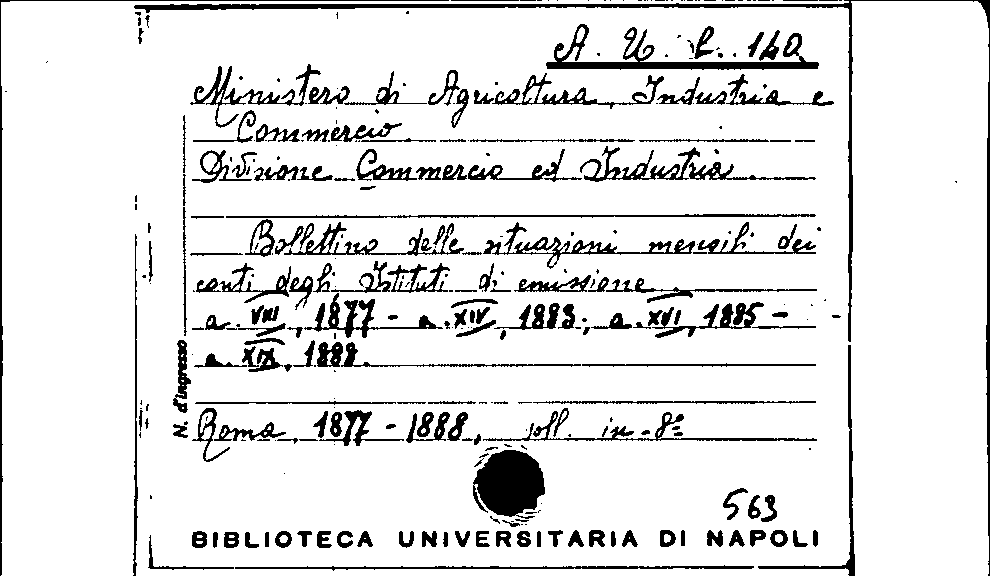 A. U. L. 140
Ministero di Agricoltura, Industria e
Commercio.
Divisione Commercio ed Industria.
Bollettino delle situazioni mensili dei
conti degli Istituti di emissione.
a. VIII, 1877 - a. XIV, 1883; a. XVI, 1885 -
a. XIX, 1888.
N. d'ingresso
Roma, 1877 - 1888, voll. in-8º
563
BIBLIOTECA UNIVERSITARIA DI NAPOLI